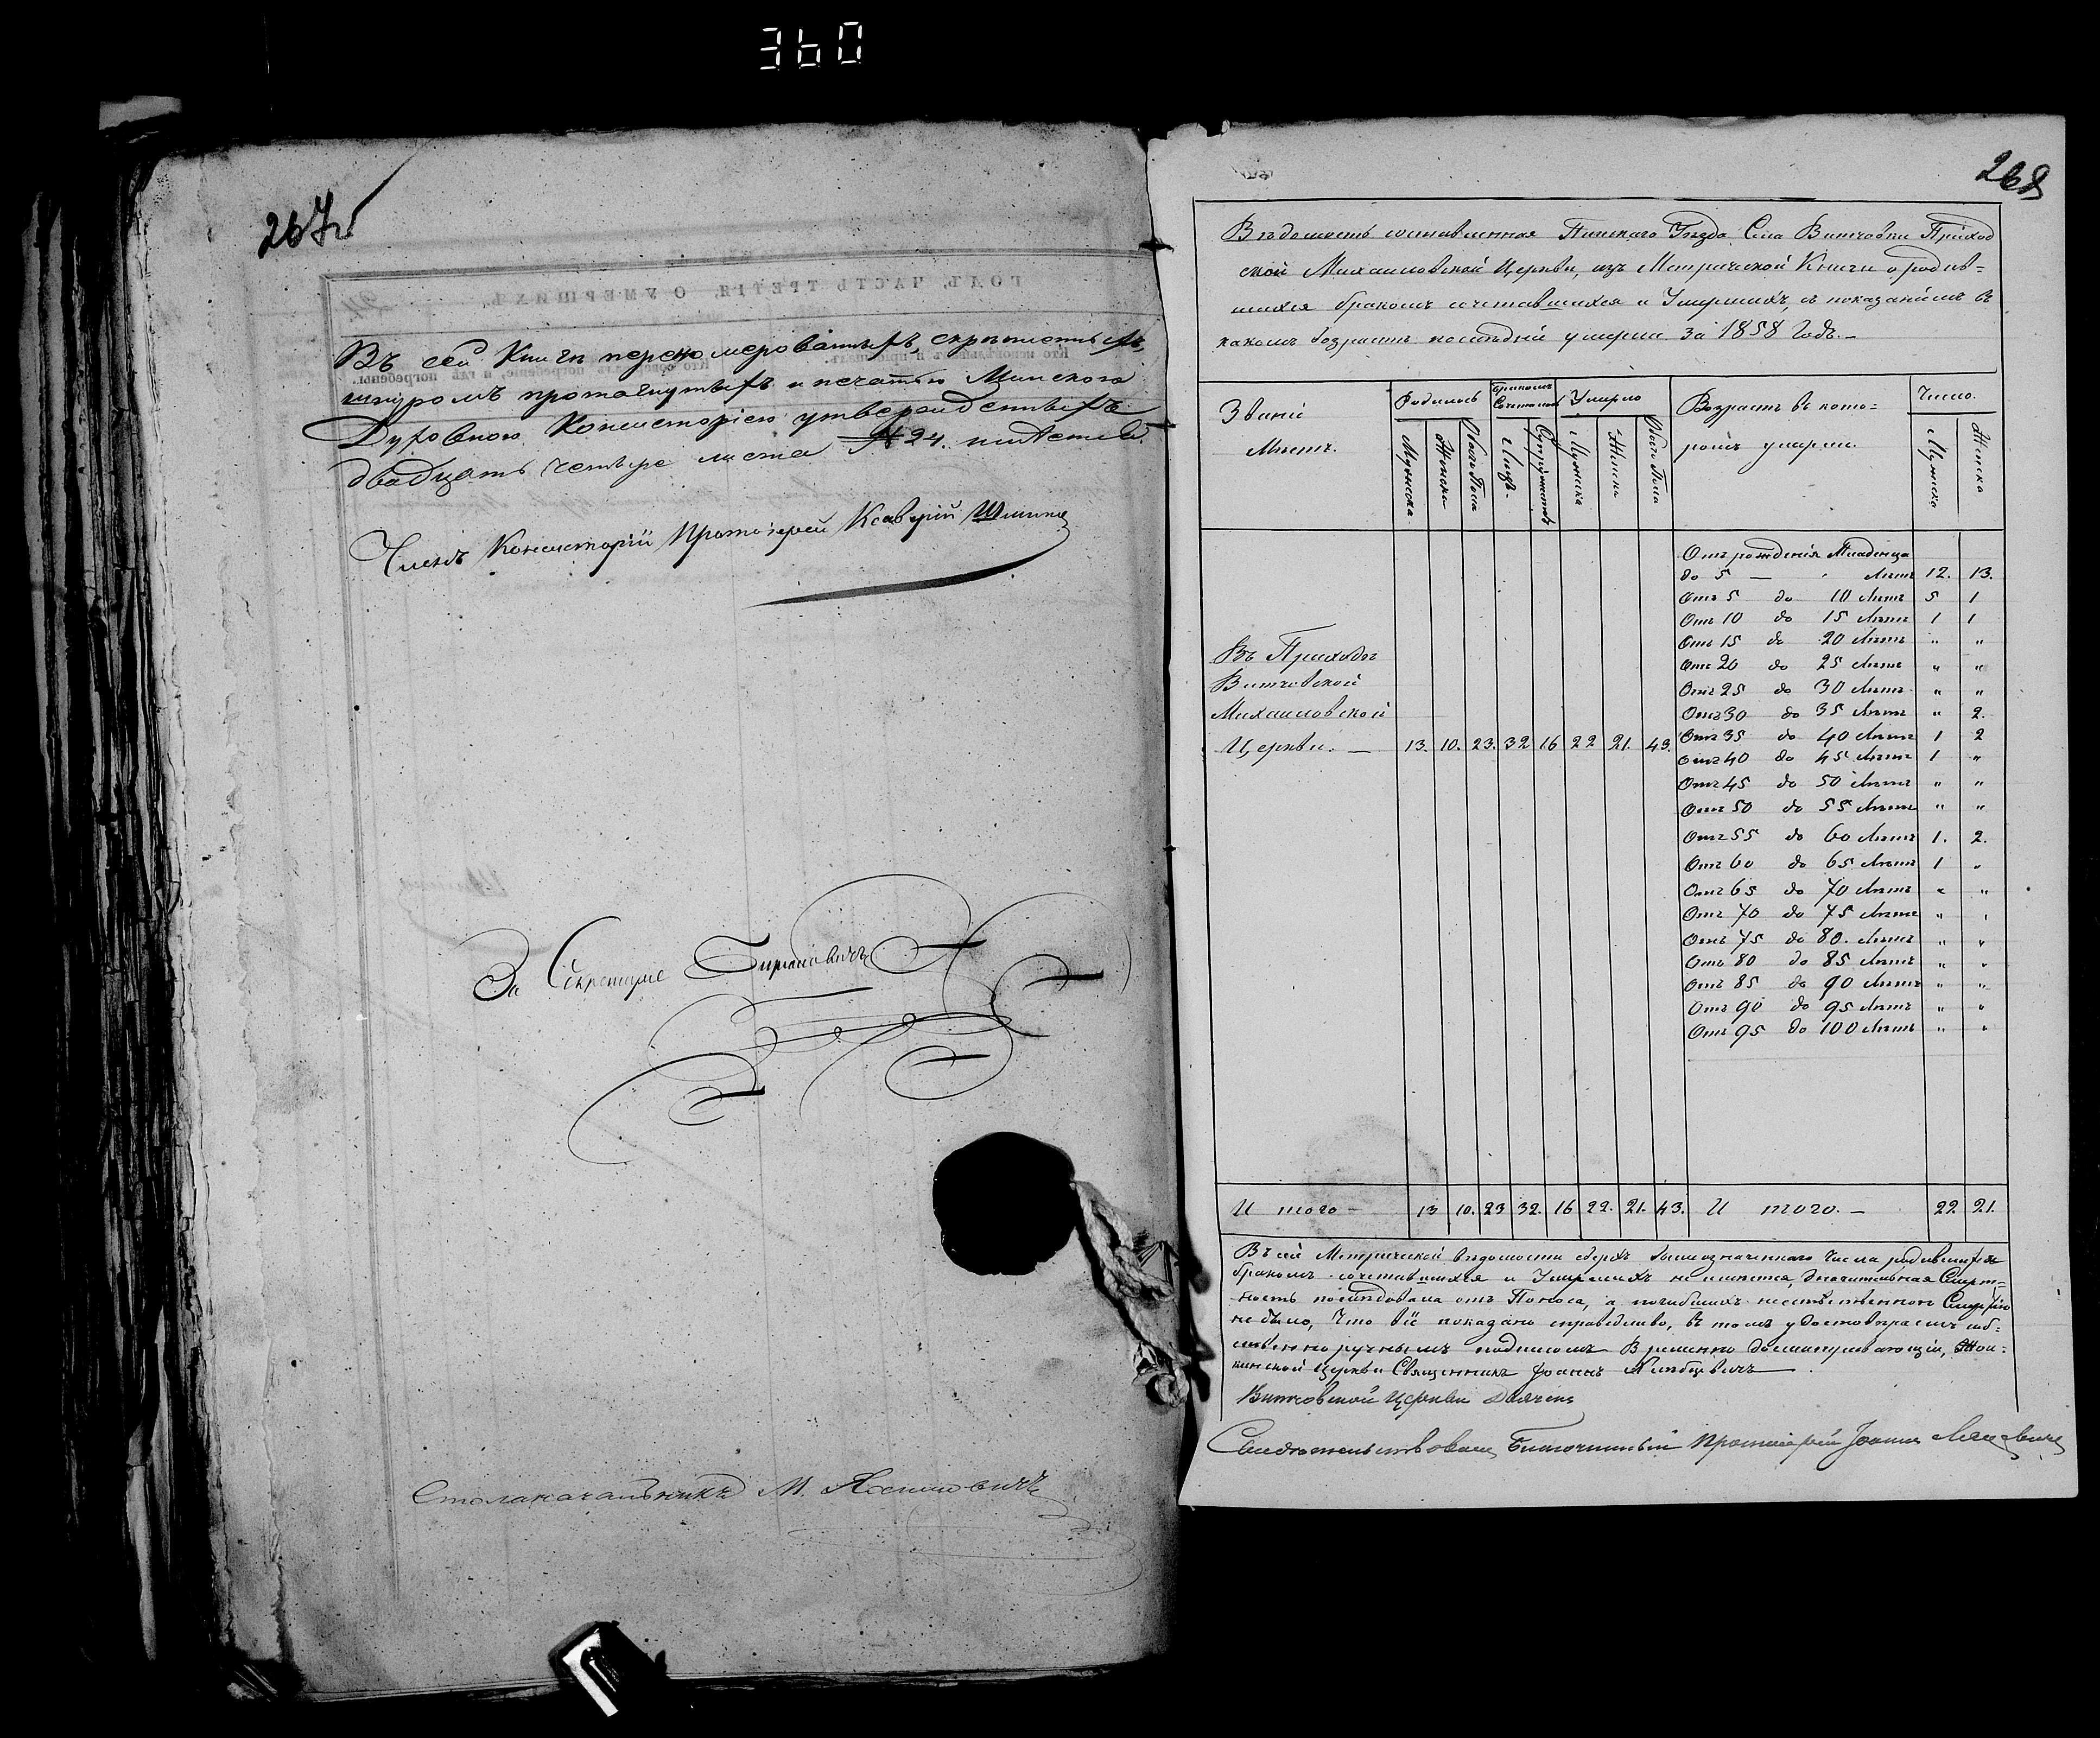 360
267об
Въ сей Книгѣ перенумерованныхъ, скрѣпленныхъ,
шнуромъ протянутыхъ и печатью Минской
Духовною Консисторіею утвержденныхъ
двадцать четыре листа № 24. листовъ.
Членъ Консисторіи Протоіерей Ксаверій
За Секретаря
Столоначальникъ М.
268
Вѣдомость составленная Пинскаго Уѣзда Села Витчовки Приход
ской Михайловской Церкви, изъ Метрической Книги о родив=
шихся бракомъ сочетавшихся и Умершихъ, съ показаніемъ въ
какомъ возрастѣ послѣдніе умерли за 1858 Годъ.—
Званіе Мѣстъ.
Родилось
Бракомъ Сочетались
Умерло
Возрастъ въ кото=
ромъ умерли.
Число.
Мужеска
Женска
Обоего Пола
Лицъ
Супружествъ
Мужска
Женска
Обоего Пола
Мужска
Женска
Отъ рожденія Младенца
до 5 — Лѣтъ 12. 13.
Отъ 5 до 10 Лѣтъ 5 1
Отъ 10 до 15 Лѣтъ 1 1
Отъ 15 до 20 Лѣтъ " "
Отъ 20 до 25 Лѣтъ " "
Отъ 25 до 30 Лѣтъ " "
Отъ 30 до 35 Лѣтъ " 2.
Отъ 35 до 40 Лѣтъ 1 2
Отъ 40 до 45 Лѣтъ 1 "
Отъ 45 до 50 Лѣтъ " "
Отъ 50 до 55 Лѣтъ " "
Отъ 55 до 60 Лѣтъ 1. 2.
Отъ 60 до 65 Лѣтъ 1 "
Отъ 65 до 70 Лѣтъ " "
Отъ 70 до 75 Лѣтъ " "
Отъ 75 до 80. Лѣтъ " "
Отъ 80 до 85 Лѣтъ " "
Отъ 85 до 90 Лѣтъ " "
Отъ 90 до 95 Лѣтъ " "
Отъ 95 до 100 Лѣтъ " "
Въ Приходѣ
Витчовской
Михайловской
Церкви. — 13. 10. 23. 32 16 22 21. 43.
И того — 13 10. 23 32. 16 22. 21. 43. И того. — 22 21.
Въ сей Метрической вѣдомости сверхъ вышеозначеннаго числа родившихся
бракомъ сочетавшихся и Умершихъ не имѣется, Значительная Смерт=
ность послѣдовала отъ Поноса, а погибшихъ неестественною Смертію
не было, Что всё показано справедливо, въ томъ удостовѣряемъ соб=
ственноручнымъ подписомъ Временно
Церкви Священникъ Іоаннъ
Витчовской Церкви Дьячекъ
Свидѣтельствовалъ Благочинный Протоіерей Іоаннъ